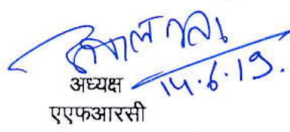 अध्यक्ष 14.6.19.
एएफआरसी